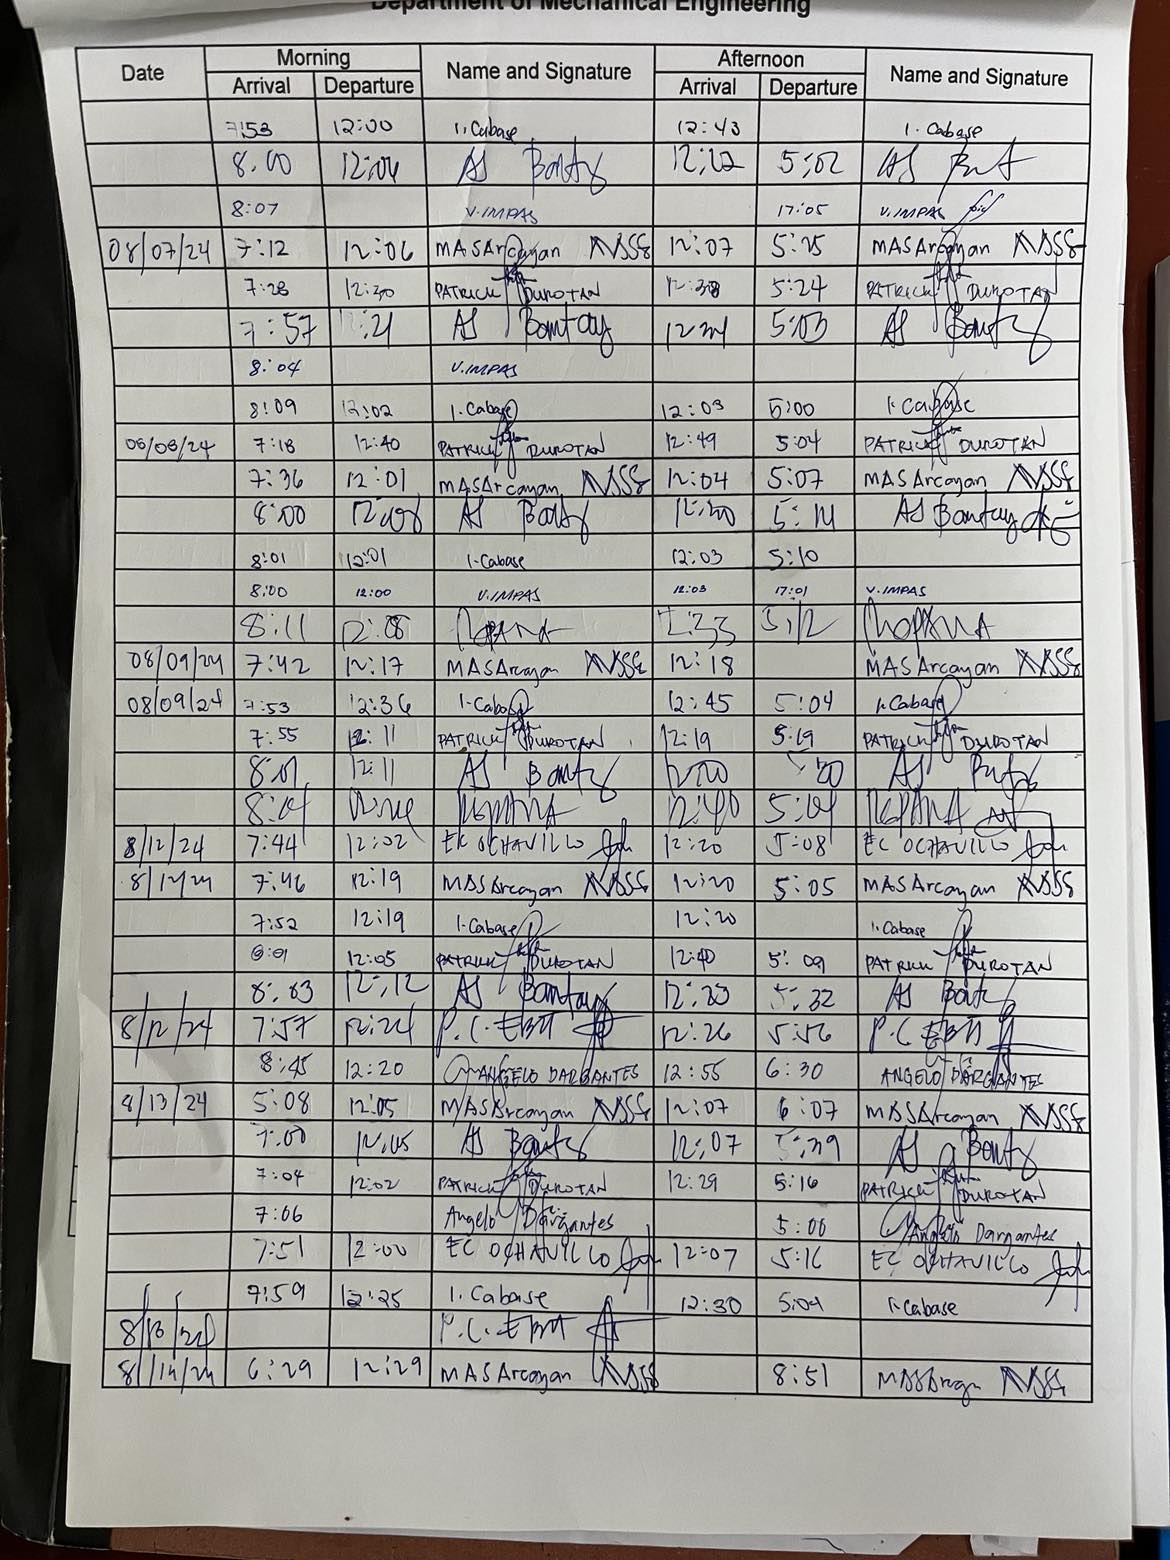 Department of Mechanical Engineering
Date Morning Name and Signature Afternoon Name and Signature
Arrival Departure Arrival Departure
7:53 12:00 I. Cabase 12:43 I. Cabase
8:00 12:06 AS 12:22 5:02 AS
8:07 V. IMPAS 17:05 V. IMPAS
08/07/24 7:12 12:06 MASArcayan 12:07 5:25 MASArcayan
7:28 12:30 PATRICK DUROTAN 12:38 5:24 PATRICK DUROTAN
7:57 AS Bantay 5:03 AS
8:04 V. IMPAS
8:09 12:02 I. Cabase 12:03 5:00 I. Cabase
08/08/24 7:18 12:40 PATRICK DUROTAN 12:49 5:04 PATRICK DUROTAN
7:36 12:01 MASArcayan 12:04 5:07 MASArcayan
8:00 12:08 AS 12:30 5:14 AS Bantay
8:01 12:01 I. Cabase 12:03 5:10
8:00 12:00 V. IMPAS 12:03 17:01 V. IMPAS
8:11 12:08 12:33 5:12
08/09/24 7:42 12:17 MASArcayan 12:18 MASArcayan
08/09/24 7:53 12:36 I. Cabase 12:45 5:04 I. Cabase
7:55 12:11 PATRICK DUROTAN 12:19 5:19 PATRICK DUROTAN
8:01 12:11 AS AS
12:40 5:04
8/12/24 7:44 12:02 EC OCHAVILLO 12:20 5:08 EC OCHAVILLO
8/12/24 7:46 12:19 MASArcayan 12:20 5:05 MASArcayan
7:52 12:19 I. Cabase 12:20 I. Cabase
8:01 12:05 PATRICK DUROTAN 12:40 5:09 PATRICK DUROTAN
8:03 12:12 AS Bantay 12:33 5:32 AS
8/12/24 7:57 12:26 P.C. 12:26 5:56 P.C.
8:45 12:20 ANGELO DARGANTES 12:55 6:30 ANGELO DARGANTES
8/13/24 5:08 12:05 MASArcayan 12:07 6:07 MASArcayan
7:00 12:05 AS 12:07 5:39 AS
7:04 12:02 PATRICK DUROTAN 12:29 5:16 PATRICK DUROTAN
7:06 Angelo Dargantes 5:00 Angelo Dargantes
7:51 12:00 EC OCHAVILLO 12:07 5:16 EC OCHAVILLO
7:59 12:25 I. Cabase 12:30 5:09 I. Cabase
8/13/24 P.C.
8/14/24 6:29 12:29 MASArcayan 8:51